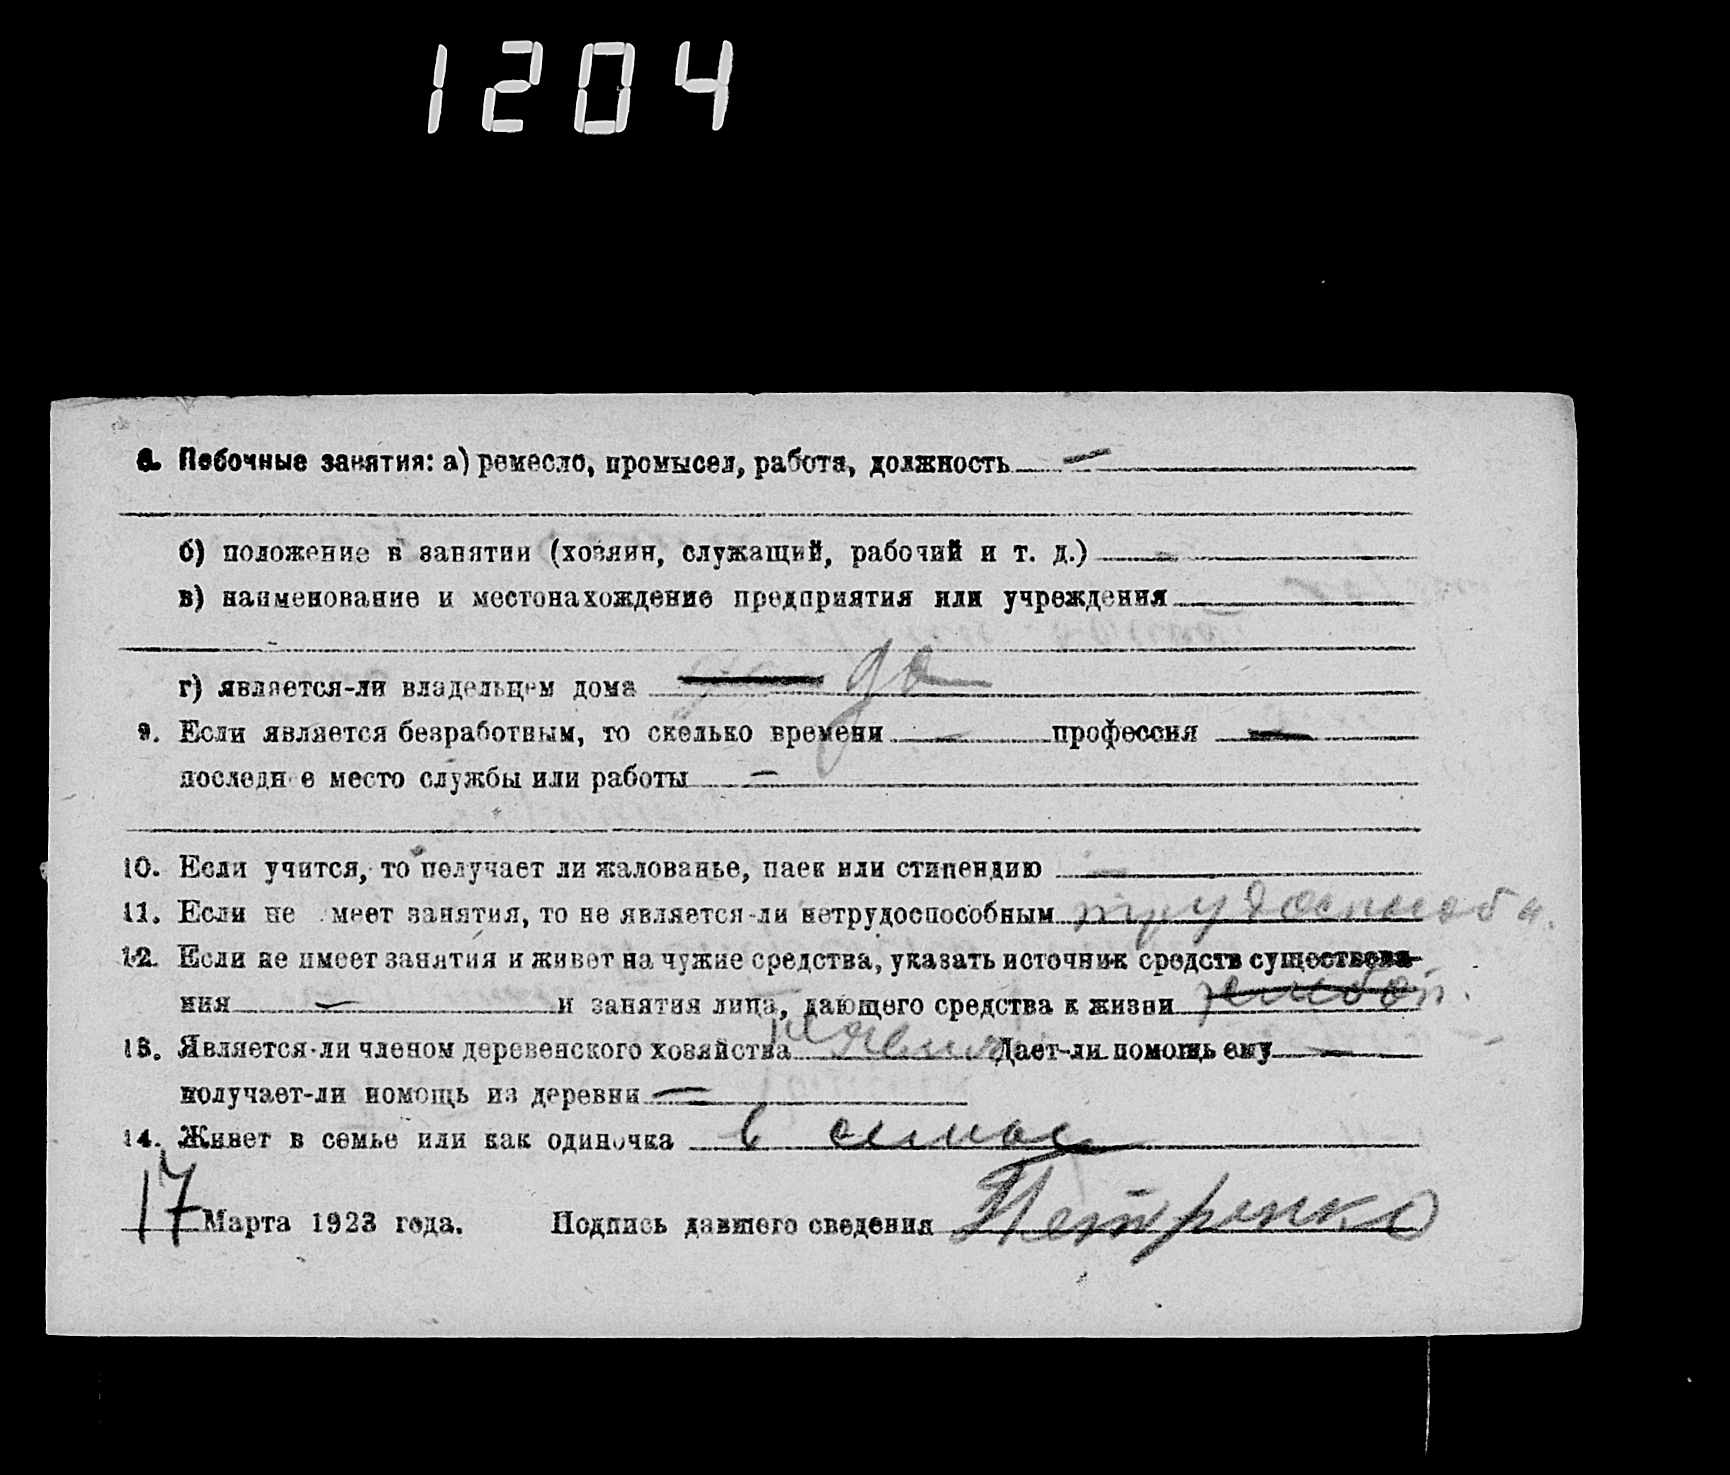 1204
8. Побочные занятия: а) ремесло, промысел, работа, должность —
б) положение в занятии (хозяин, служащий, рабочий и т. д.) —
в) наименование и местонахождение предприятия или учреждения
г) является-ли владельцем дома да
9. Если является безработным, то сколько времени — профессия —
последнее место службы или работы —
10. Если учится, то получает ли жалованье, паек или стипендию —
11. Если не имеет занятия, то не является-ли нетрудоспособным трудоспособн.
12. Если не имеет занятия и живет на чужие средства, указать источник средств существова-
ния — и занятия лица, дающего средства к жизни
13. Является-ли членом деревенского хозяйства Дает-ли помощь ему —
получает-ли помощь из деревни —
14. Живет в семье или как одиночка в семье
17 Марта 1923 года. Подпись давшего сведения Петренко